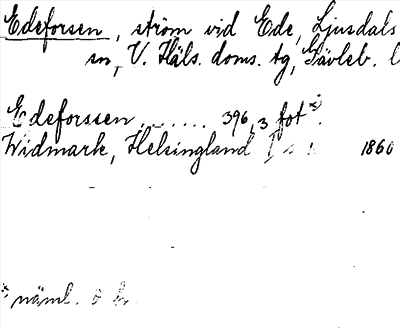 Edeforsen, ström vid Ede, Ljusdals
sn, V. Häls. doms. tg, Gävleb. l
Edeforssen ....... 396,3 fot *).
Widmark, Helsingland I 1860
* näml. ö h.